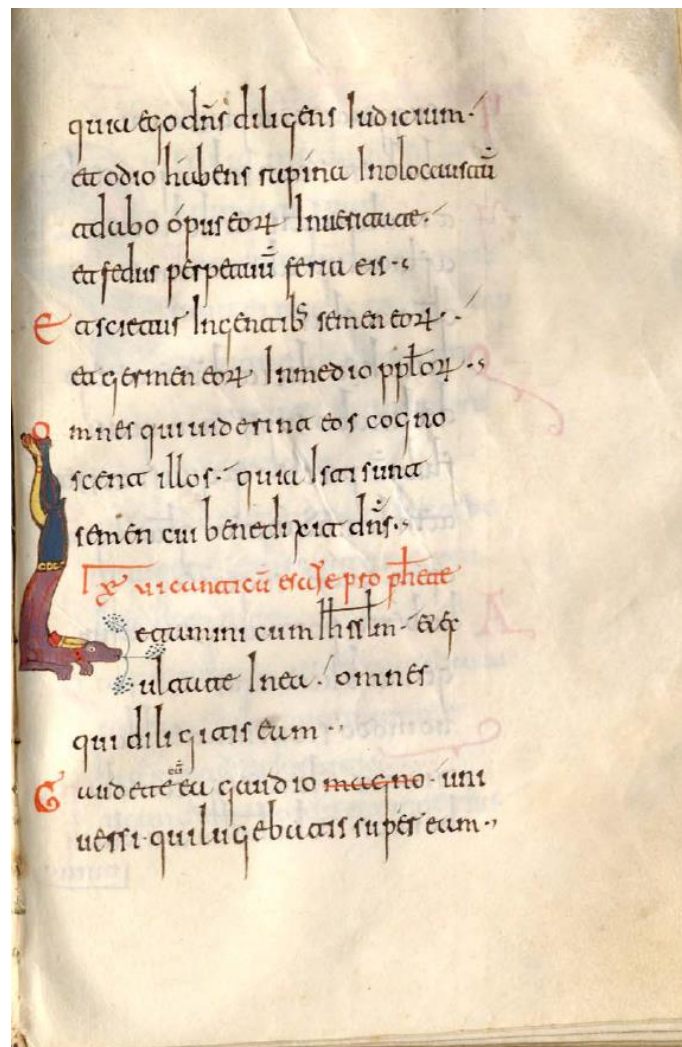 quia ego dn̄s diligens Iudicium·
et odio habens rapina Inolocaustū
et dabo opus eorꝝ Inueritate·
et fedus perpetuū feriā eis·
Et scietur Ingentibꝰ semen eorꝝ·
et germen eorꝝ Inmedio pplorꝝ·
Omnes qui uiderint eos cogno
scent illos· quia Isti sunt
semen cui benedixit dn̄s·
canticū esaye pro phete
Letamini cum Ihslm· et ex
ultate Inea· omnes
qui diligitis eam·
Gaudete cū ea gaudio magno· uni
uersi· qui lugebatis super eam·